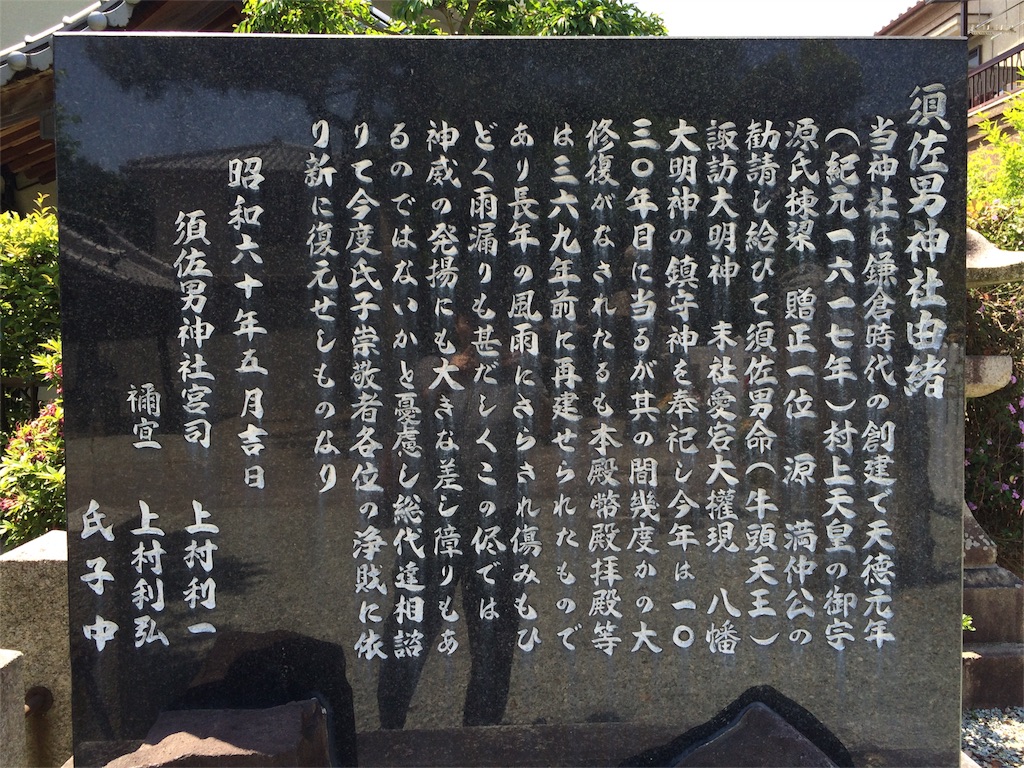 須佐男神社由緒
当神社は鎌倉時代の創建で天徳元年
（紀元一六一七年）村上天皇の御宇
源氏棟梁　贈正一位　源　満仲公の
勧請し給ひて須佐男命（牛頭天王）
諏訪大明神　末社愛宕大権現　八幡
大明神の鎮守神を奉祀し今年は一〇
三〇年目に当るが其の間幾度かの大
修復がなされたるも本殿幣殿拝殿等
は三六九年前に再建せられたもので
あり長年の風雨にさらされ傷みもひ
どく雨漏りも甚だしくこの侭では
神威の発揚にも大きな差し障りもあ
るのではないかと憂慮し総代達相諮
りて今度氏子崇敬者各位の浄財に依
り新に復元せしものなり
昭和六十年五月吉日
須佐男神社宮司　上村利一
禰宜　上村利弘
氏子中